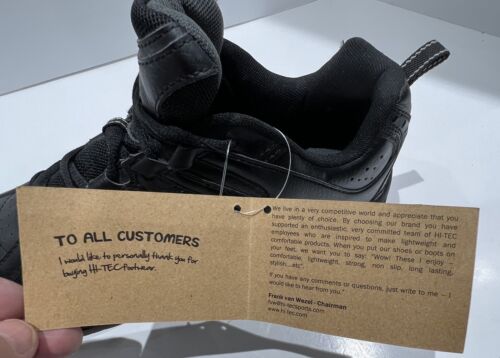 TO ALL CUSTOMERS
I would like to personally thank you for
buying HI-TEC footwear.
We live in a very competitive world and appreciate that you
have plenty of choice. By choosing our brand you have
supported an enthusiastic, very committed team of HI-TEC
employees who are inspired to make lightweight and
comfortable products. When you put our shoes or boots on
your feet, we want you to say: "Wow! These I enjoy –
comfortable, lightweight, strong, non slip, long lasting,
stylish....etc".
If you have any comments or questions, just write to me – I
would like to hear from you."
Frank van Wezel - Chairman
fvw@hi-tecsports.com
www.hi-tec.com